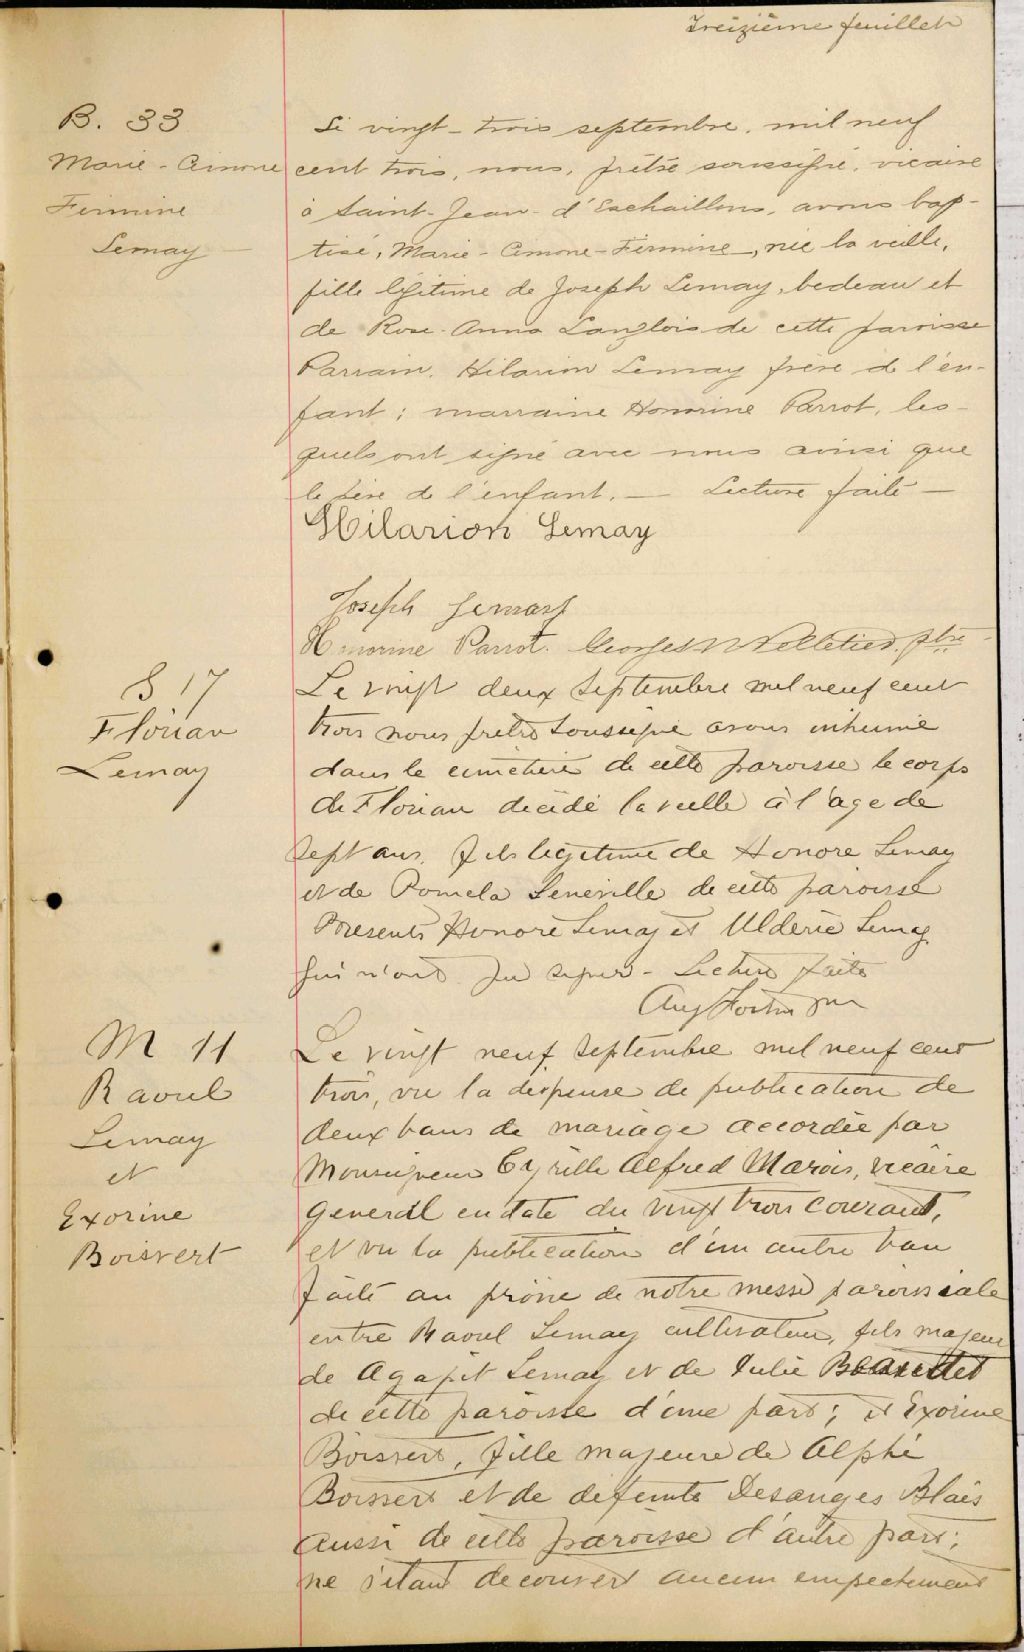 Treizième feuillet
B. 33
Marie-Aimone
Firmine
Lemay
Le vingt-trois septembre, mil neuf
cent trois, nous, prêtre soussigné, vicaire
à Saint-Jean-d'Eschaillons, avons bap-
tisé, Marie-Aimone-Firmine, née la veille,
fille légitime de Joseph Lemay, bedeau et
de Rose-Anna Langlois de cette paroisse
Parrain, Hilarion Lemay frère de l'en-
fant; marraine Honorine Parrot, les-
quels ont signé avec nous ainsi que
le père de l'enfant. — Lecture faite —
Hilarion Lemay
Joseph Lemay
Honorine Parrot. Georges Pelletier, ptre
S 17
Florian
Lemay
Le vingt deux septembre mil neuf cent
trois nous prêtre soussigné avons inhumé
dans le cimetière de cette paroisse le corps
de Florian décédé la veille à l'age de
sept ans, fils légitime de Honoré Lemay
et de Pomela Leneville de cette paroisse
Presents Honoré Lemay et Ulderic Lemay
qui n'ont pu signer - Lecture faite
M 11
Raoul
Lemay
et
Exorine
Boisvert
Le vingt neuf septembre mil neuf cent
trois, vu la dispense de publication de
deux bans de mariage accordée par
Monseigneur Cyrille Alfred Marois, vicaire
general en date du vingt trois courant,
et vu la publication d'un autre ban
faite au prône de notre messe paroissiale
entre Raoul Lemay cultivateur, fils majeur
de Agapit Lemay et de Julie Beaudet
de cette paroisse d'une part; et Exorine
Boisvert, fille majeure de Alphé
Boisvert et de défunte Desanges Blais
aussi de cette paroisse d'autre part;
ne s'étant decouvert aucun empechement